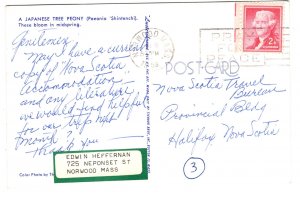 A JAPANESE TREE PEONY (Paeonia 'Shintenchi').
These bloom in midspring.
Gentlemen
May I have a current
copy of Nova Scotia
accommodation
and any literature
we would find helpful
for our trip next
month
Thank you
EDWIN HEFFERNAN
725 NEPONSET ST
NORWOOD MASS
Color Photo by
POSTCARD
PRAY
FOR
PEACE
2¢
Nova Scotia Travel
Bureau
Provincial Bldg
Halifax Nova Scotia
3